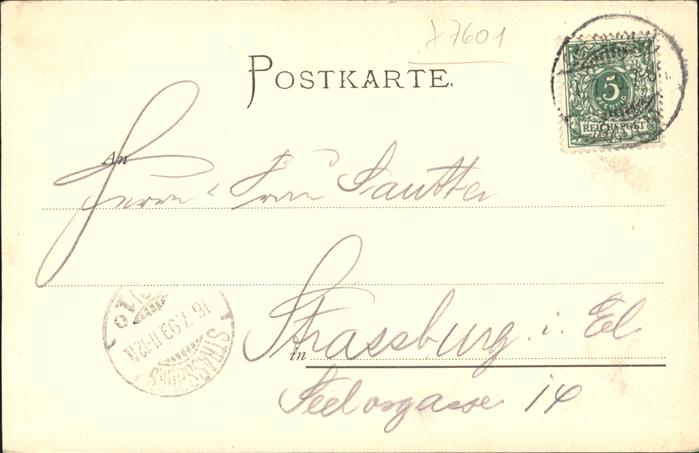 x7601
POSTKARTE.
5
REICHSPOST
An
Herrn & Frau Sautter
in Strassburg i. El
Seelosgasse 14
STRASSBURG
16.7.99 11-12